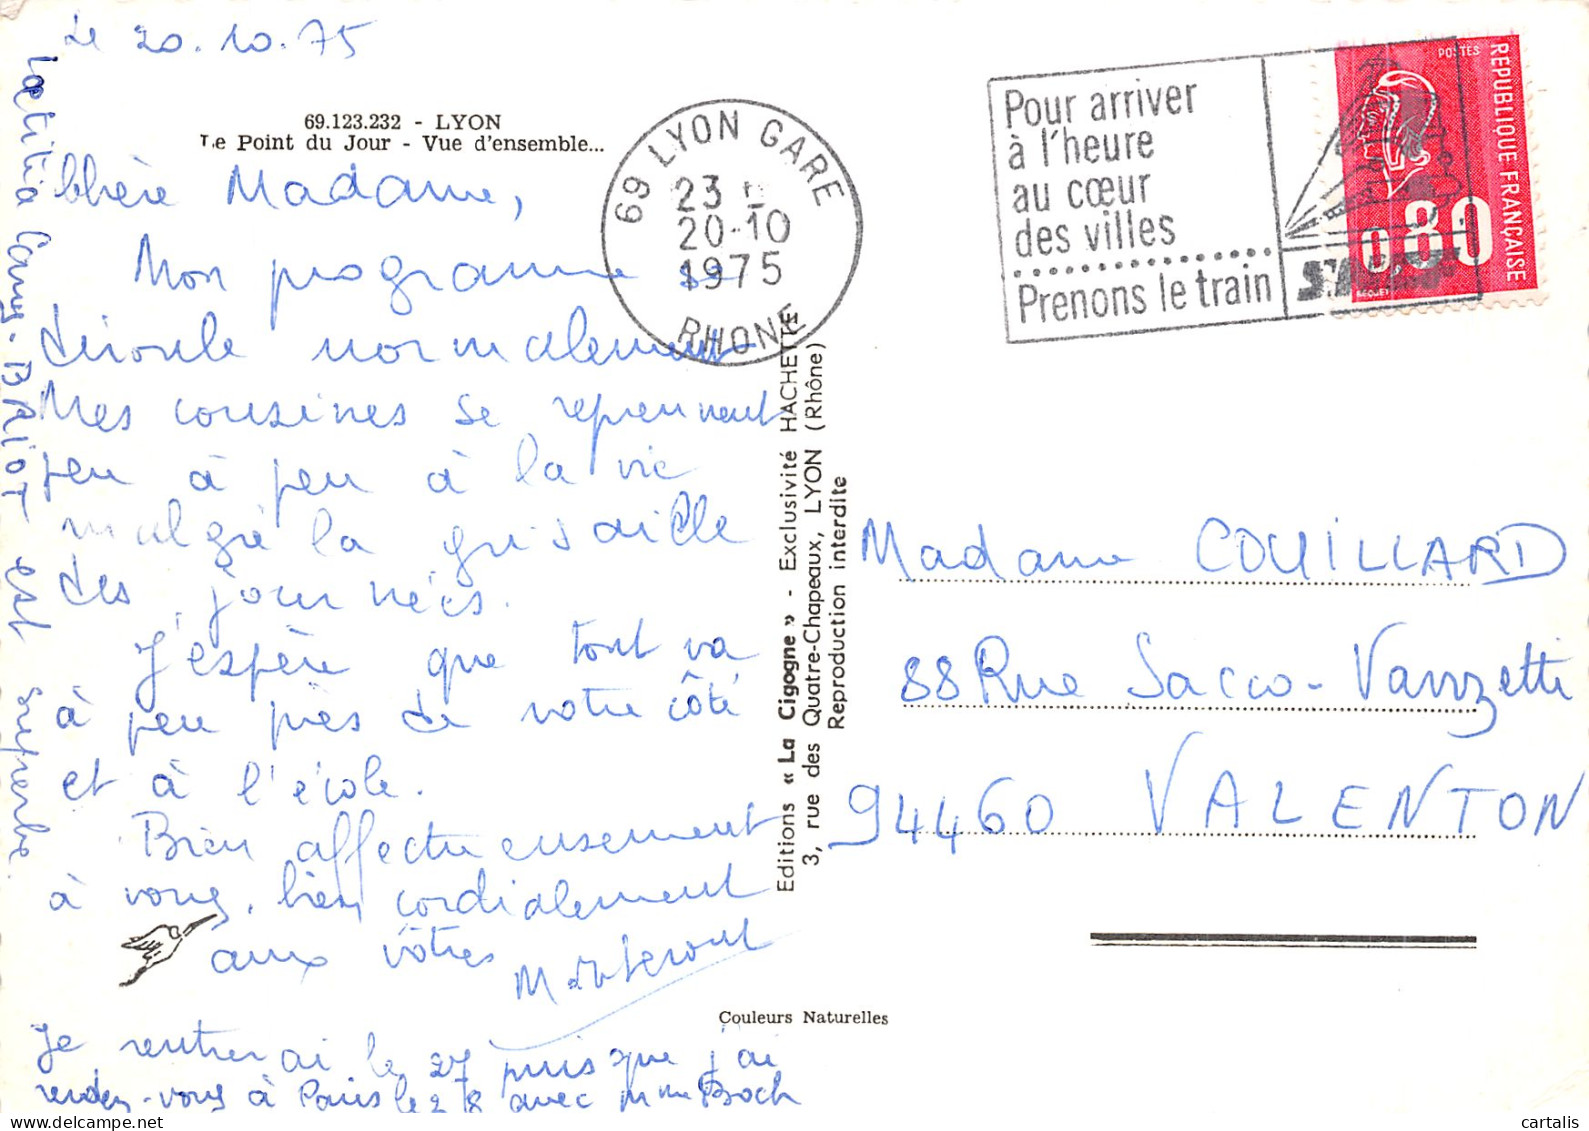 Le 20.10.75
69.123.232 - LYON
Le Point du Jour - Vue d'ensemble...
Chère Madame,
Mon programme se
déroule normalement
Mes cousines se reprennent
peu à peu à la vie
malgré la grisaille
des journées.
J'espère que tout va
à peu près de votre côté
et à l'école.
Bien affectueusement
à vous, bien cordialement
aux vôtres
Je rentrerai le 27 puisque j'ai
rendez-vous à Paris le 28 avec Mme Boch
Laetitia BRIOT est superbe
69 LYON GARE
23 H
20-10
1975
RHONE
Pour arriver
à l'heure
au cœur
des villes
Prenons le train
SNCF
POSTES
REPUBLIQUE FRANÇAISE
0,80
Editions « La Cigogne » - Exclusivité HACHETTE
3, rue des Quatre-Chapeaux, LYON (Rhône)
Reproduction interdite
Madame COUILLARD
88 Rue Sacco-Vanzetti
94460 VALENTON
Couleurs Naturelles
cartalis
delcampe.net